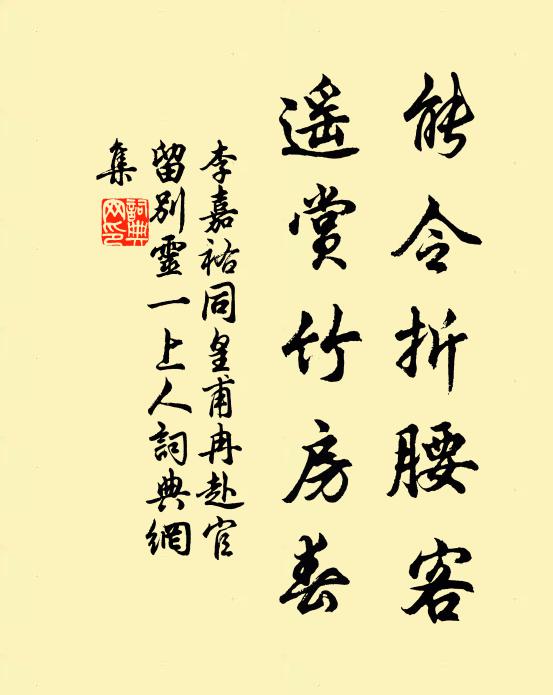 能令折腰客
遥賞竹房春
李嘉祐同皇甫冉赴官
留別靈一上人詞典網
集
詞典網印